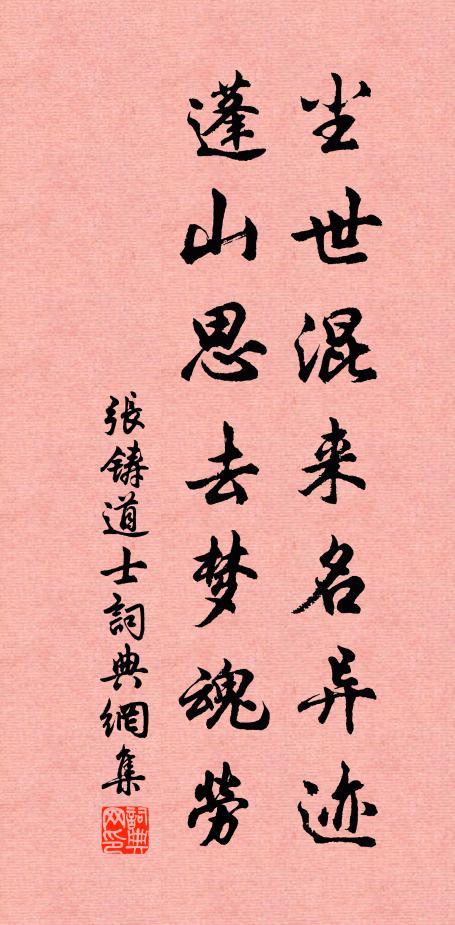 尘世混来名异迹
蓬山思去梦魂劳
張鑄道士詞典網集
詞典网印